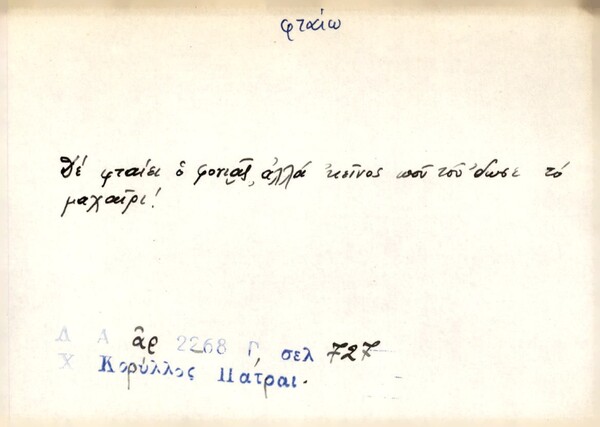 φταίω
Δέ φταίει ὁ φονιᾶς, ἀλλά 'κεῖνος ποῦ τοῦ 'δωσε τό
μαχαῖρι!
Λ Α ἀρ 2268 Γ, σελ 727
Χ Κορύλλος Πάτραι.